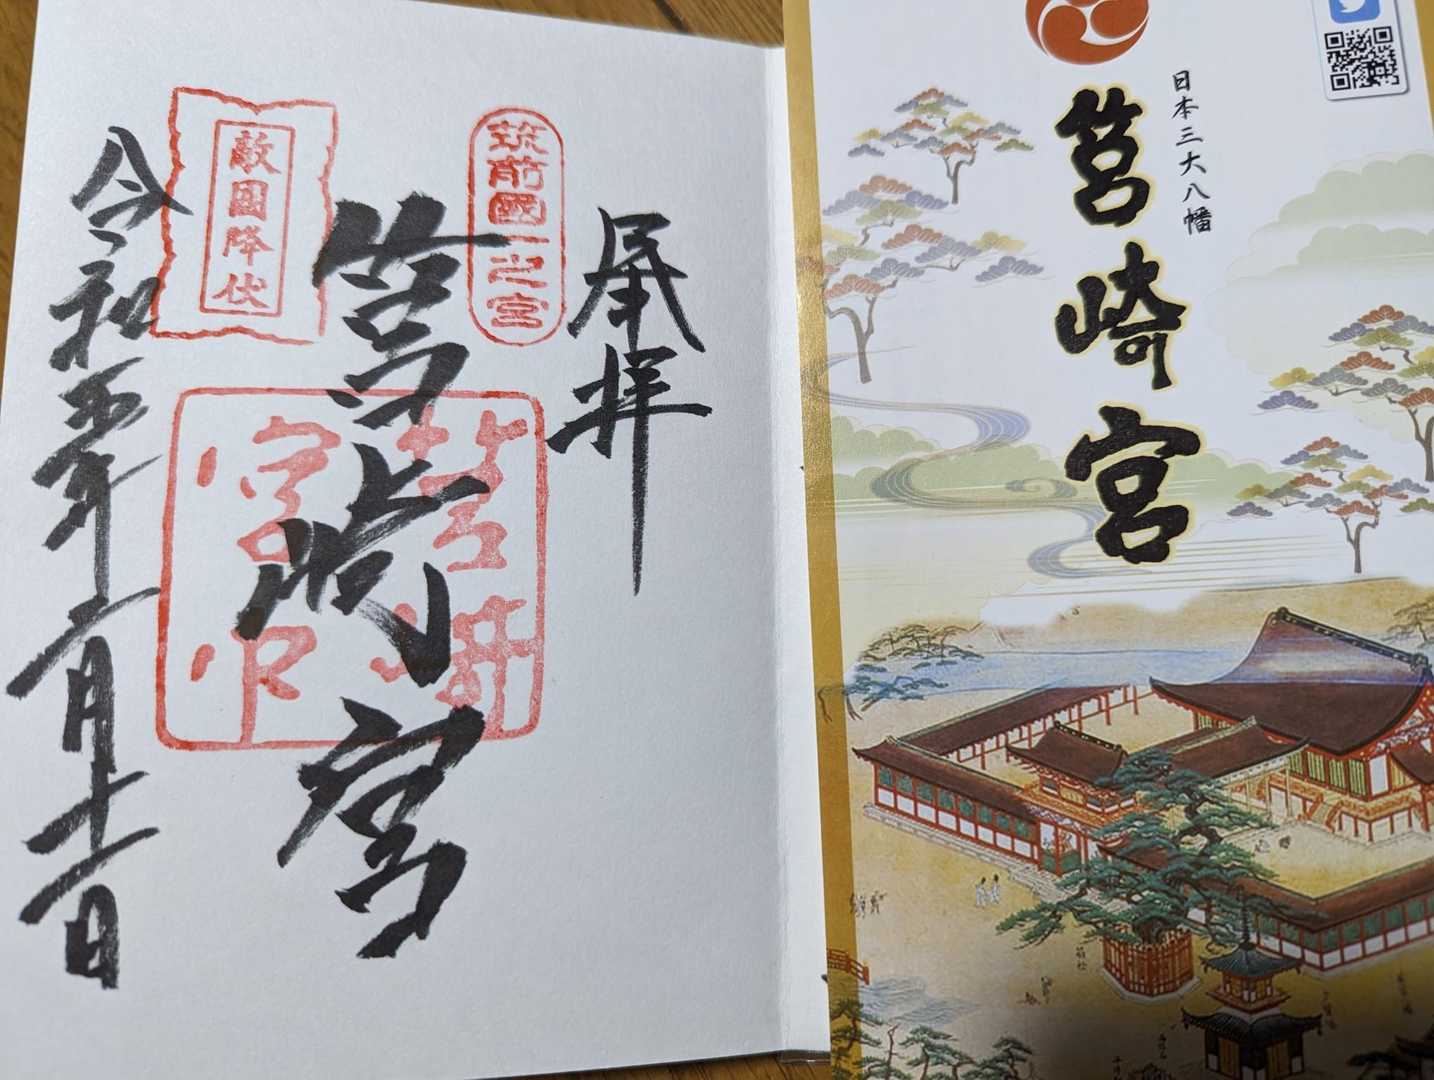 奉拝
筑前國一之宮
筥崎宮
筥崎
宮印
敵國降伏
令和五年二月十一日
日本三大八幡
筥崎宮